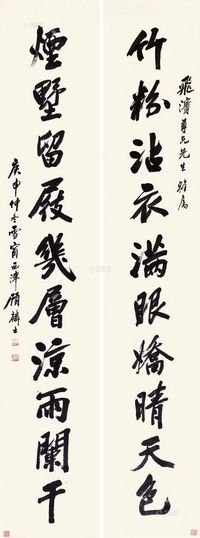 飛濱尊兄先生雅屬
竹粉沾衣滿眼嬌晴天色
煙墅留屐幾層涼雨闌干
庚申仲冬雪窗西津顧麟士